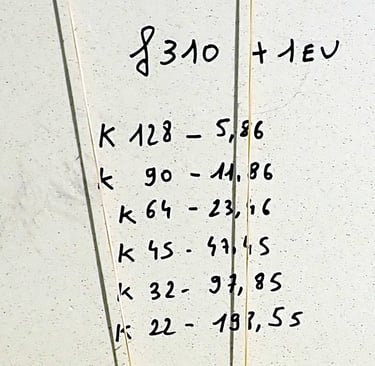 f 310 + 1 EV
K 128 - 5,86
K 90 - 11,86
K 64 - 23,46
K 45 - 47,45
K 32 - 97,85
K 22 -